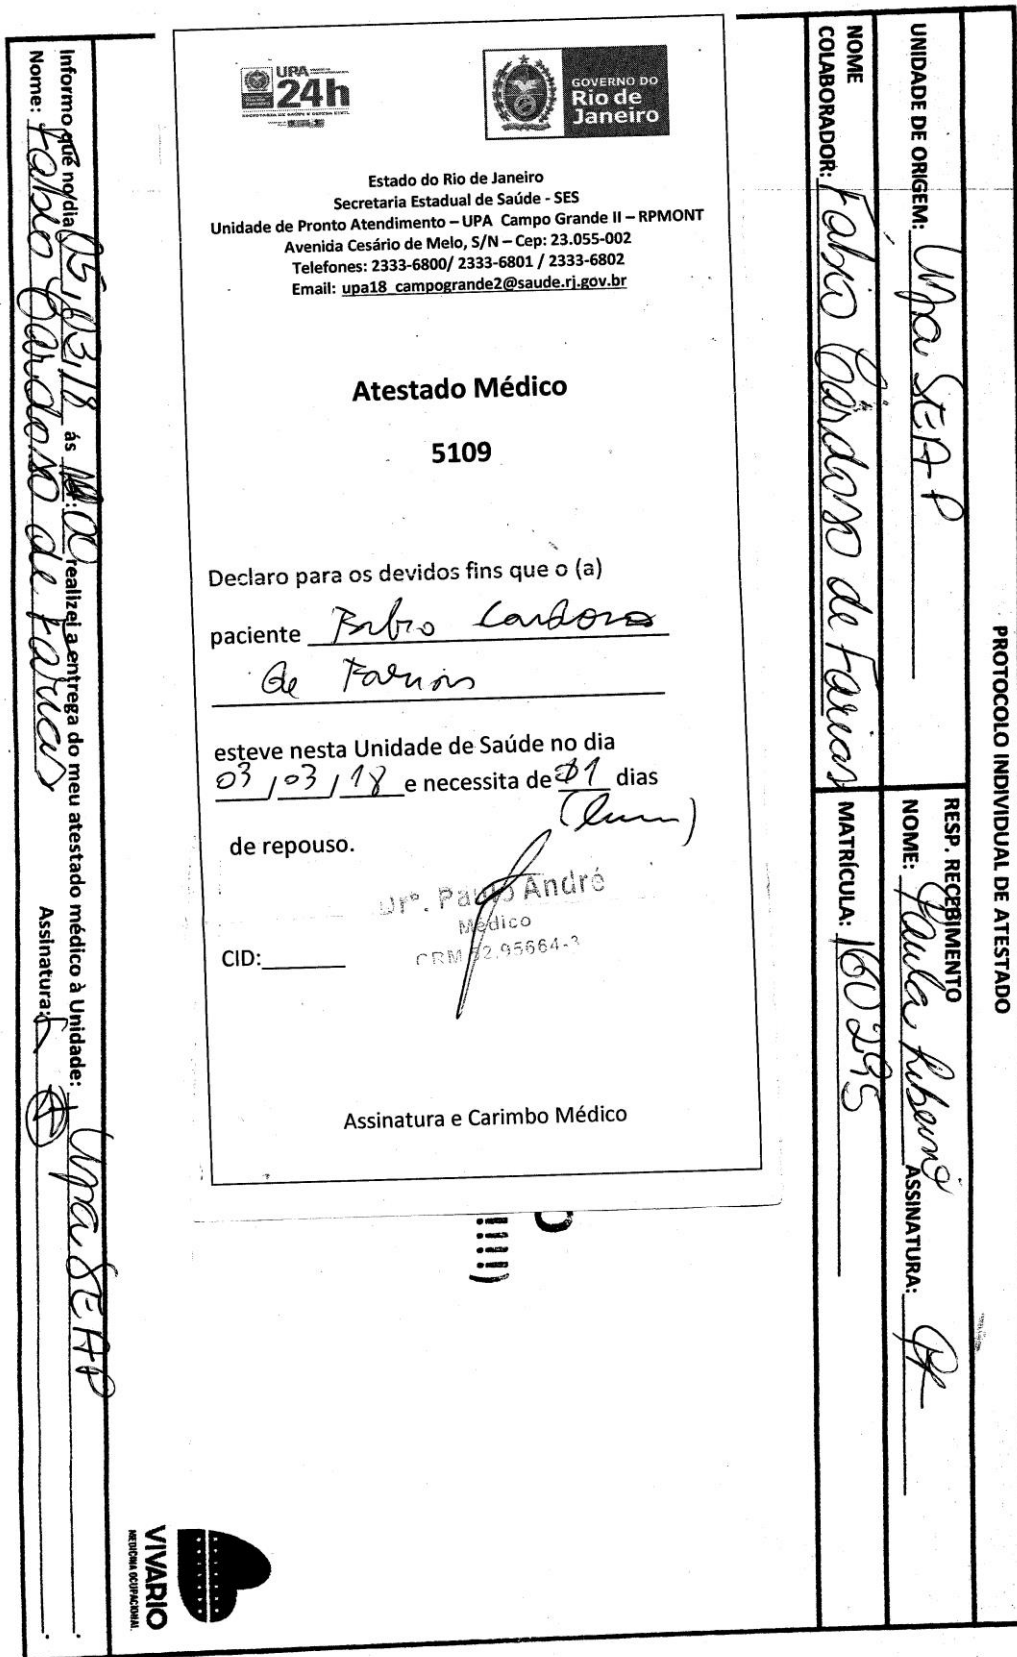 PROTOCOLO INDIVIDUAL DE ATESTADO
UNIDADE DE ORIGEM: Upa SEAP
RESP. RECEBIMENTO
NOME: Paula Ribeiro ASSINATURA:
NOME
COLABORADOR: Fabio Cardoso de Farias
MATRÍCULA: 160295
UPA
24h
SECRETARIA DE SAÚDE E DEFESA CIVIL
GOVERNO DO
Rio de
Janeiro
Estado do Rio de Janeiro
Secretaria Estadual de Saúde - SES
Unidade de Pronto Atendimento – UPA Campo Grande II – RPMONT
Avenida Cesário de Melo, S/N – Cep: 23.055-002
Telefones: 2333-6800/ 2333-6801 / 2333-6802
Email: upa18_campogrande2@saude.rj.gov.br
Atestado Médico
5109
Declaro para os devidos fins que o (a)
paciente Fabio Cardoso
de Farias
esteve nesta Unidade de Saúde no dia
03/03/18 e necessita de 01 dias
(hum)
de repouso.
Drº. Paulo André
Médico
CRM 52.95664-3
CID:
Assinatura e Carimbo Médico
Informo que no dia 05/03/18 ás :00 realizei a entrega do meu atestado médico à Unidade: Upa SEAP
Nome: Fabio Cardoso de Farias Assinatura:
VIVARIO
MEDICINA OCUPACIONAL